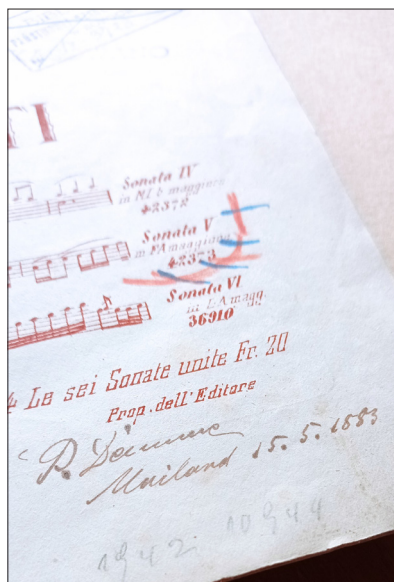 TI
Sonata IV
in MI♭ maggiore
42372
Sonata V
in FA maggiore
42373
Sonata VI
in LA magg.
36910
Le sei Sonate unite Fr. 20
Prop. dell'Editore
Mailand 15. 5. 1883